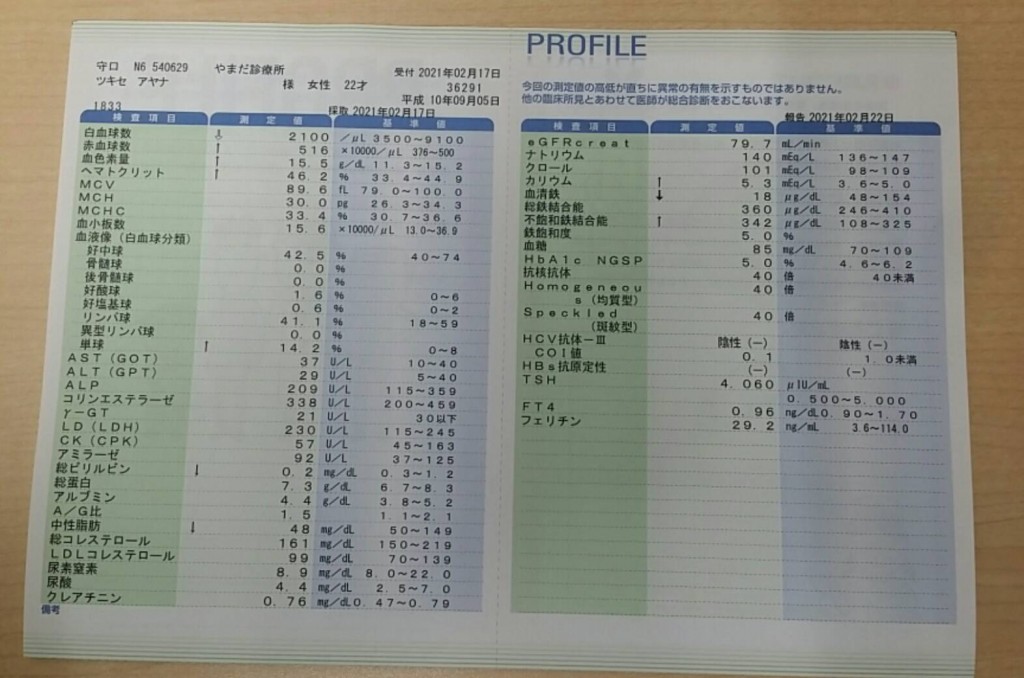 守口 N6 540629 やまだ診療所 受付 2021年02月17日
ツキセ アヤナ 様 女性 22才 36291
平成 10年09月05日
1833 採取 2021年02月17日
検査項目 測定値 基準値
白血球数 ↓ 2100 /μL 3500~9100
赤血球数 ↑ 516 ×10000/μL 376~500
血色素量 ↑ 15.5 g/dL 11.3~15.2
ヘマトクリット ↑ 46.2 % 33.4~44.9
MCV 89.6 fL 79.0~100.0
MCH 30.0 pg 26.3~34.3
MCHC 33.4 % 30.7~36.6
血小板数 15.6 ×10000/μL 13.0~36.9
血液像(白血球分類)
好中球 42.5 % 40~74
骨髄球 0.0 %
後骨髄球 0.0 %
好酸球 1.6 % 0~6
好塩基球 0.6 % 0~2
リンパ球 41.1 % 18~59
異型リンパ球 0.0 %
単球 ↑ 14.2 % 0~8
AST(GOT) 37 U/L 10~40
ALT(GPT) 29 U/L 5~40
ALP 209 U/L 115~359
コリンエステラーゼ 338 U/L 200~459
γ-GT 21 U/L 30以下
LD(LDH) 230 U/L 115~245
CK(CPK) 57 U/L 45~163
アミラーゼ 92 U/L 37~125
総ビリルビン ↓ 0.2 mg/dL 0.3~1.2
総蛋白 7.3 g/dL 6.7~8.3
アルブミン 4.4 g/dL 3.8~5.2
A/G比 1.5 1.1~2.1
中性脂肪 ↓ 48 mg/dL 50~149
総コレステロール 161 mg/dL 150~219
LDLコレステロール 99 mg/dL 70~139
尿素窒素 8.9 mg/dL 8.0~22.0
尿酸 4.4 mg/dL 2.5~7.0
クレアチニン 0.76 mg/dL 0.47~0.79
備考
PROFILE
今回の測定値の高低が直ちに異常の有無を示すものではありません。
他の臨床所見とあわせて医師が総合診断をおこないます。
報告 2021年02月22日
検査項目 測定値 基準値
eGFRcreat 79.7 mL/min
ナトリウム 140 mEq/L 136~147
クロール 101 mEq/L 98~109
カリウム ↑ 5.3 mEq/L 3.6~5.0
血清鉄 ↓ 18 μg/dL 48~154
総鉄結合能 360 μg/dL 246~410
不飽和鉄結合能 ↑ 342 μg/dL 108~325
鉄飽和度 5.0 %
血糖 85 mg/dL 70~109
HbA1c NGSP 5.0 % 4.6~6.2
抗核抗体 40 倍 40未満
Homogeneou 40 倍
s(均質型)
Speckled 40 倍
(斑紋型)
HCV抗体-III 陰性(-) 陰性(-)
COI値 0.1 1.0未満
HBs抗原定性 (-) (-)
TSH 4.060 μIU/mL
0.500~5.000
FT4 0.96 ng/dL 0.90~1.70
フェリチン 29.2 ng/mL 3.6~114.0